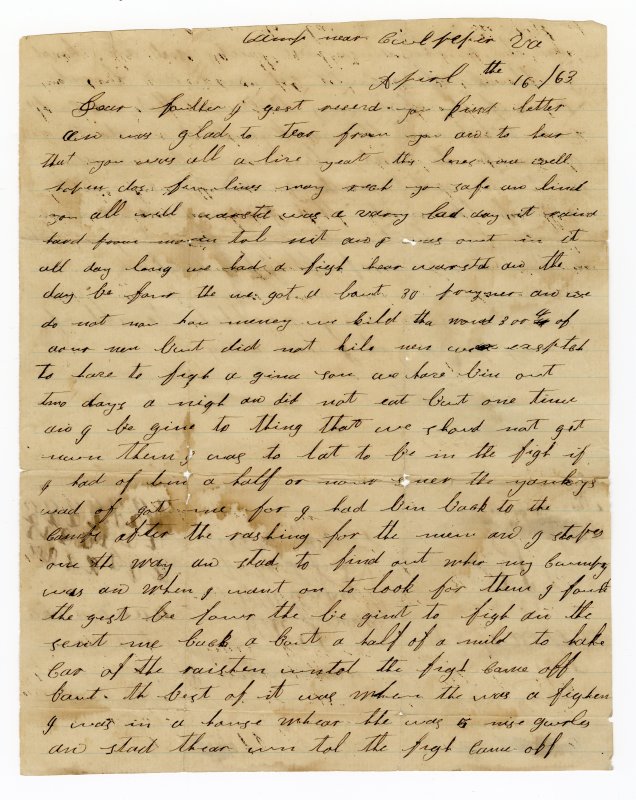 Camp near Culpeper Va
Apirl the 16 /63
Dear father j gest received you kind letter
an was glad to hear from you an to hear
that you was all a live yeat this leves me well
hopen dos few lines may reah you safe an find
you all well was a varry bad day it raind
hard from mornin tol nit an j was out in it
all day long we had a figh hear an the
day be four the we got a bout 30 prysner an we
do not now how meney we kild tha wound 3 or 4 of
aour men but did not kile nun we exspted
to have to figh a gine son we have bin out
two days a nigh an did not eat but one time
an j be gine to thing that we shoud not get
nun then j was to lat to be in the figh if
j had of bin a half or nour suner the yankeys
wad of got me for j had bin back to the
camp after the rashing for the men an j stopes
one the way an stad to find out wher my cumpny
was an when j want on to look for them j found
the gest be four the be gint to figh an the
sent me back a bout a half of a mild to take
car of the raishen untol the figh came off
bout th best of it was when the was a fighen
j was in a house whear the was 5 nise gurles
an stad thear un tol the figh came off